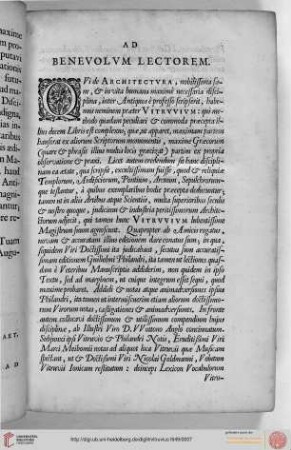 AD
BENEVOLVM LECTOREM.
QVi de ARCHITECTVRA, nobilissima sa-
ne, & in vita humana maximè necessaria disci-
plina, inter Antiquos è professo scripserit, habe-
mus neminem præter VITRVVIVM: qui me-
thodo quadam peculiari & commoda præcepta il-
lius decem Libris est complexus; quæ, ut apparet, maximam partem
hauserat ex aliorum Scriptorum monumentis, maximè Græcorum
(quare & phrasis illius multa loca græcizat) partim ex propria
observatione & praxi. Licet autem credendum sit hanc discipli-
nam ea ætate, qua scripsit, excultissimam fuisse, quod & reliquiæ
Templorum, Aedificiorum, Pontium, Arcuum, Sepulchrorum-
que testantur, à quibus exemplaribus hodie præcepta deducuntur;
tamen ut in aliis Artibus atque Scientiis, multa superioribus seculis
& nostro quoque, judicium & industria peritissimorum Architec-
torum adjecit, qui tamen hunc VITRVVIVM lubentissime
Magistrum suum agnoscunt. Quapropter ab Amicis rogatus,
novam & accuratam illius editionem dare conatus sum; in qua,
sequidem Viri Doctissimi ita judicabant, secutus sum accuratis-
simam editionem Guilielmi Philandri, ita tamen ut lectiones quas-
dam è Veteribus Manuscriptis addiderim, non quidem in ipso
Textu, sed ad marginem, ut cuique integrum esset sequi, quod
maximè probaret. Addidi & notas atque animadversiones ipsius
Philandri, ita tamen ut intermiscuerim etiam aliorum doctissimo-
rum Virorum notas, castigationes & animadversiones. In fronte
autem collocavi doctissimum & utilissimum compendium hujus
disciplinæ, ab Illustri Viro D. VVottono Anglo concinnatum.
Subjunxi ipsi Vitruvio & Philandri Notis, Eruditissimi Viri
Marci Meibomii notas ad aliquot loca Vitruvii quæ Musicam
spectant, ut & Doctissimi Viri Nicolai Goldmanni, Volutam
Vitruvii Ionicam restitutam: deinceps Lexicon Vocabulorum
Vitru-
http://digi.ub.uni-heidelberg.de/diglit/vitruvius1649/0007
UNIVERSITÄTS-
BIBLIOTHEK
HEIDELBERG